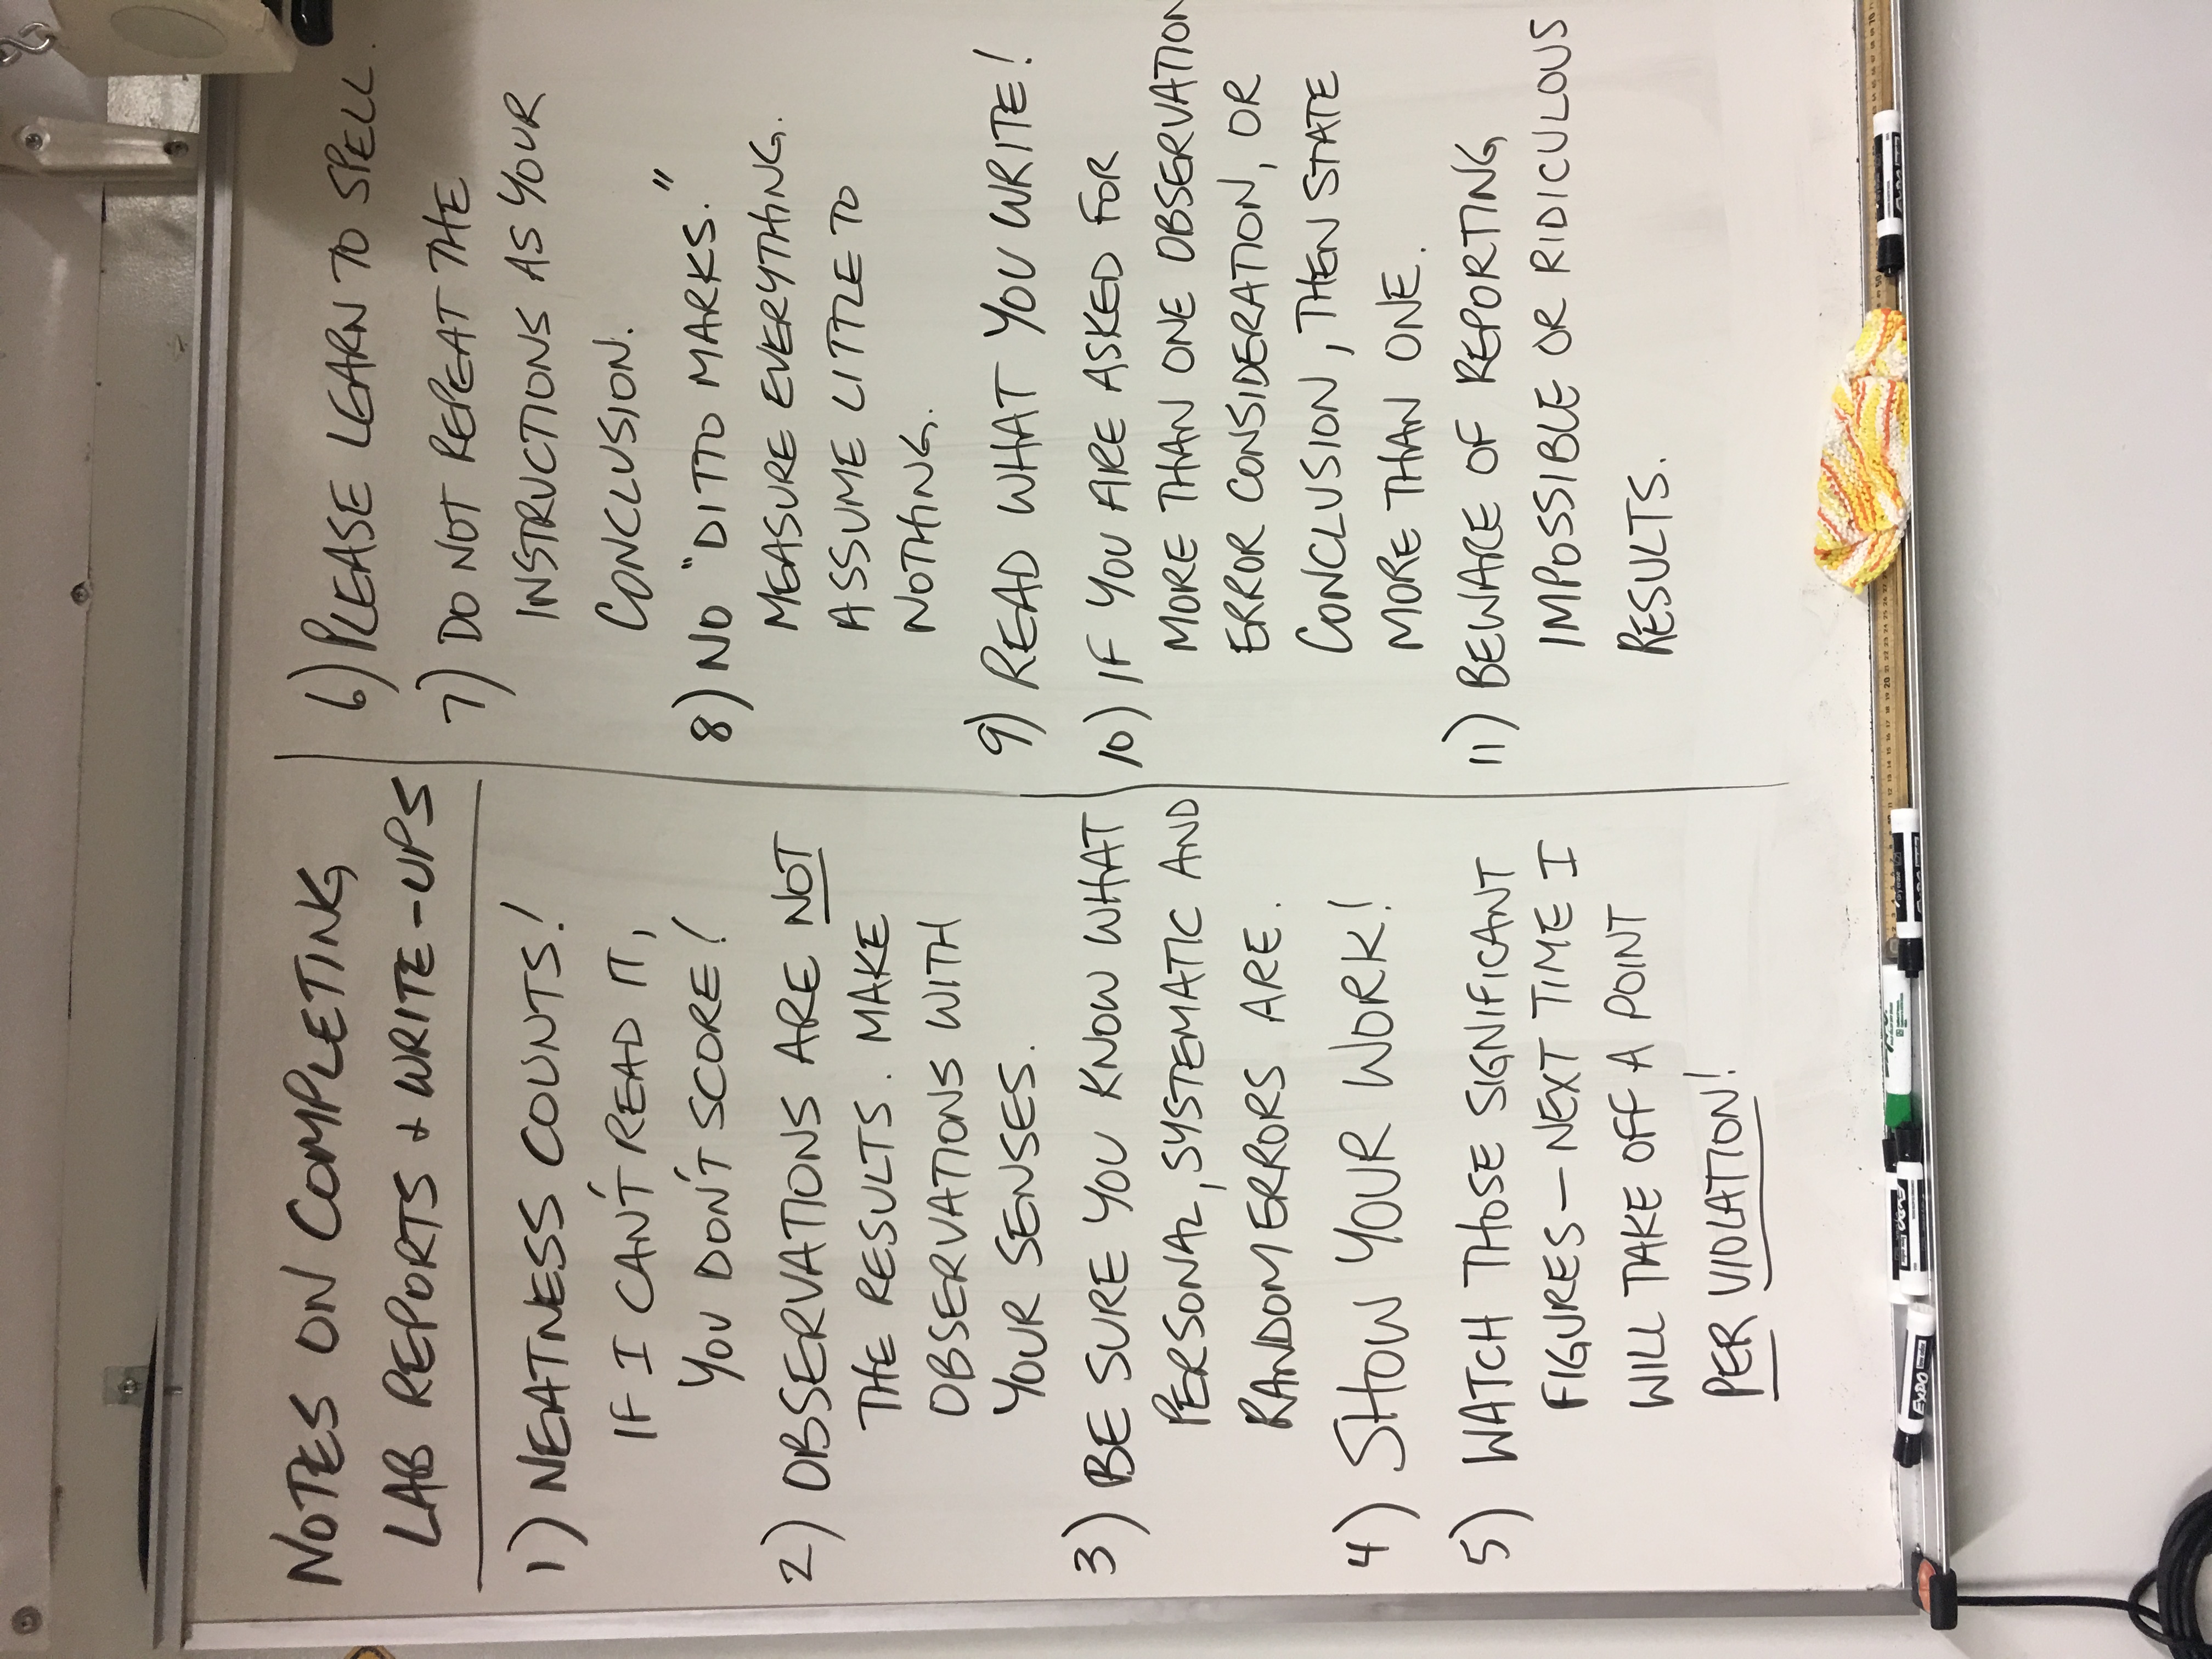 NOTES ON COMPLETING
LAB REPORTS & WRITE-UPS
1) NEATNESS COUNTS!
IF I CAN'T READ IT,
YOU DON'T SCORE!
2) OBSERVATIONS ARE NOT
THE RESULTS. MAKE
OBSERVATIONS WITH
YOUR SENSES.
3) BE SURE YOU KNOW WHAT
PERSONAL, SYSTEMATIC AND
RANDOM ERRORS ARE.
4) SHOW YOUR WORK!
5) WATCH THOSE SIGNIFICANT
FIGURES — NEXT TIME I
WILL TAKE OFF A POINT
PER VIOLATION!
6) PLEASE LEARN TO SPELL.
7) DO NOT REPEAT THE
INSTRUCTIONS AS YOUR
CONCLUSION.
8) NO "DITTO MARKS."
MEASURE EVERYTHING.
ASSUME LITTLE TO
NOTHING.
9) READ WHAT YOU WRITE!
10) IF YOU ARE ASKED FOR
MORE THAN ONE OBSERVATION
ERROR CONSIDERATION, OR
CONCLUSION, THEN STATE
MORE THAN ONE.
11) BEWARE OF REPORTING
IMPOSSIBLE OR RIDICULOUS
RESULTS.
EXPO